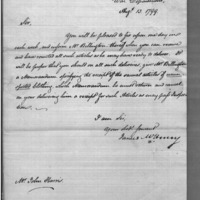 War Department,
Augt. 13. 1799.
Sir,
You will be pleased to fix upon one day in
each week and inform Mr Billington thereof when you can receive
and have counted all such articles as he may have ready to deliver. It
will be proper that you should on all such deliveries, give Mr Billington
a Memorandum specifying the receipt of the several articles of
clothing. Such Memorandum he must return and
on your delivering him a receipt for such Articles as may pass Inspec-
tion.
I am Sir,
Your Obt. Servant
James McHenry
Mr John Harris